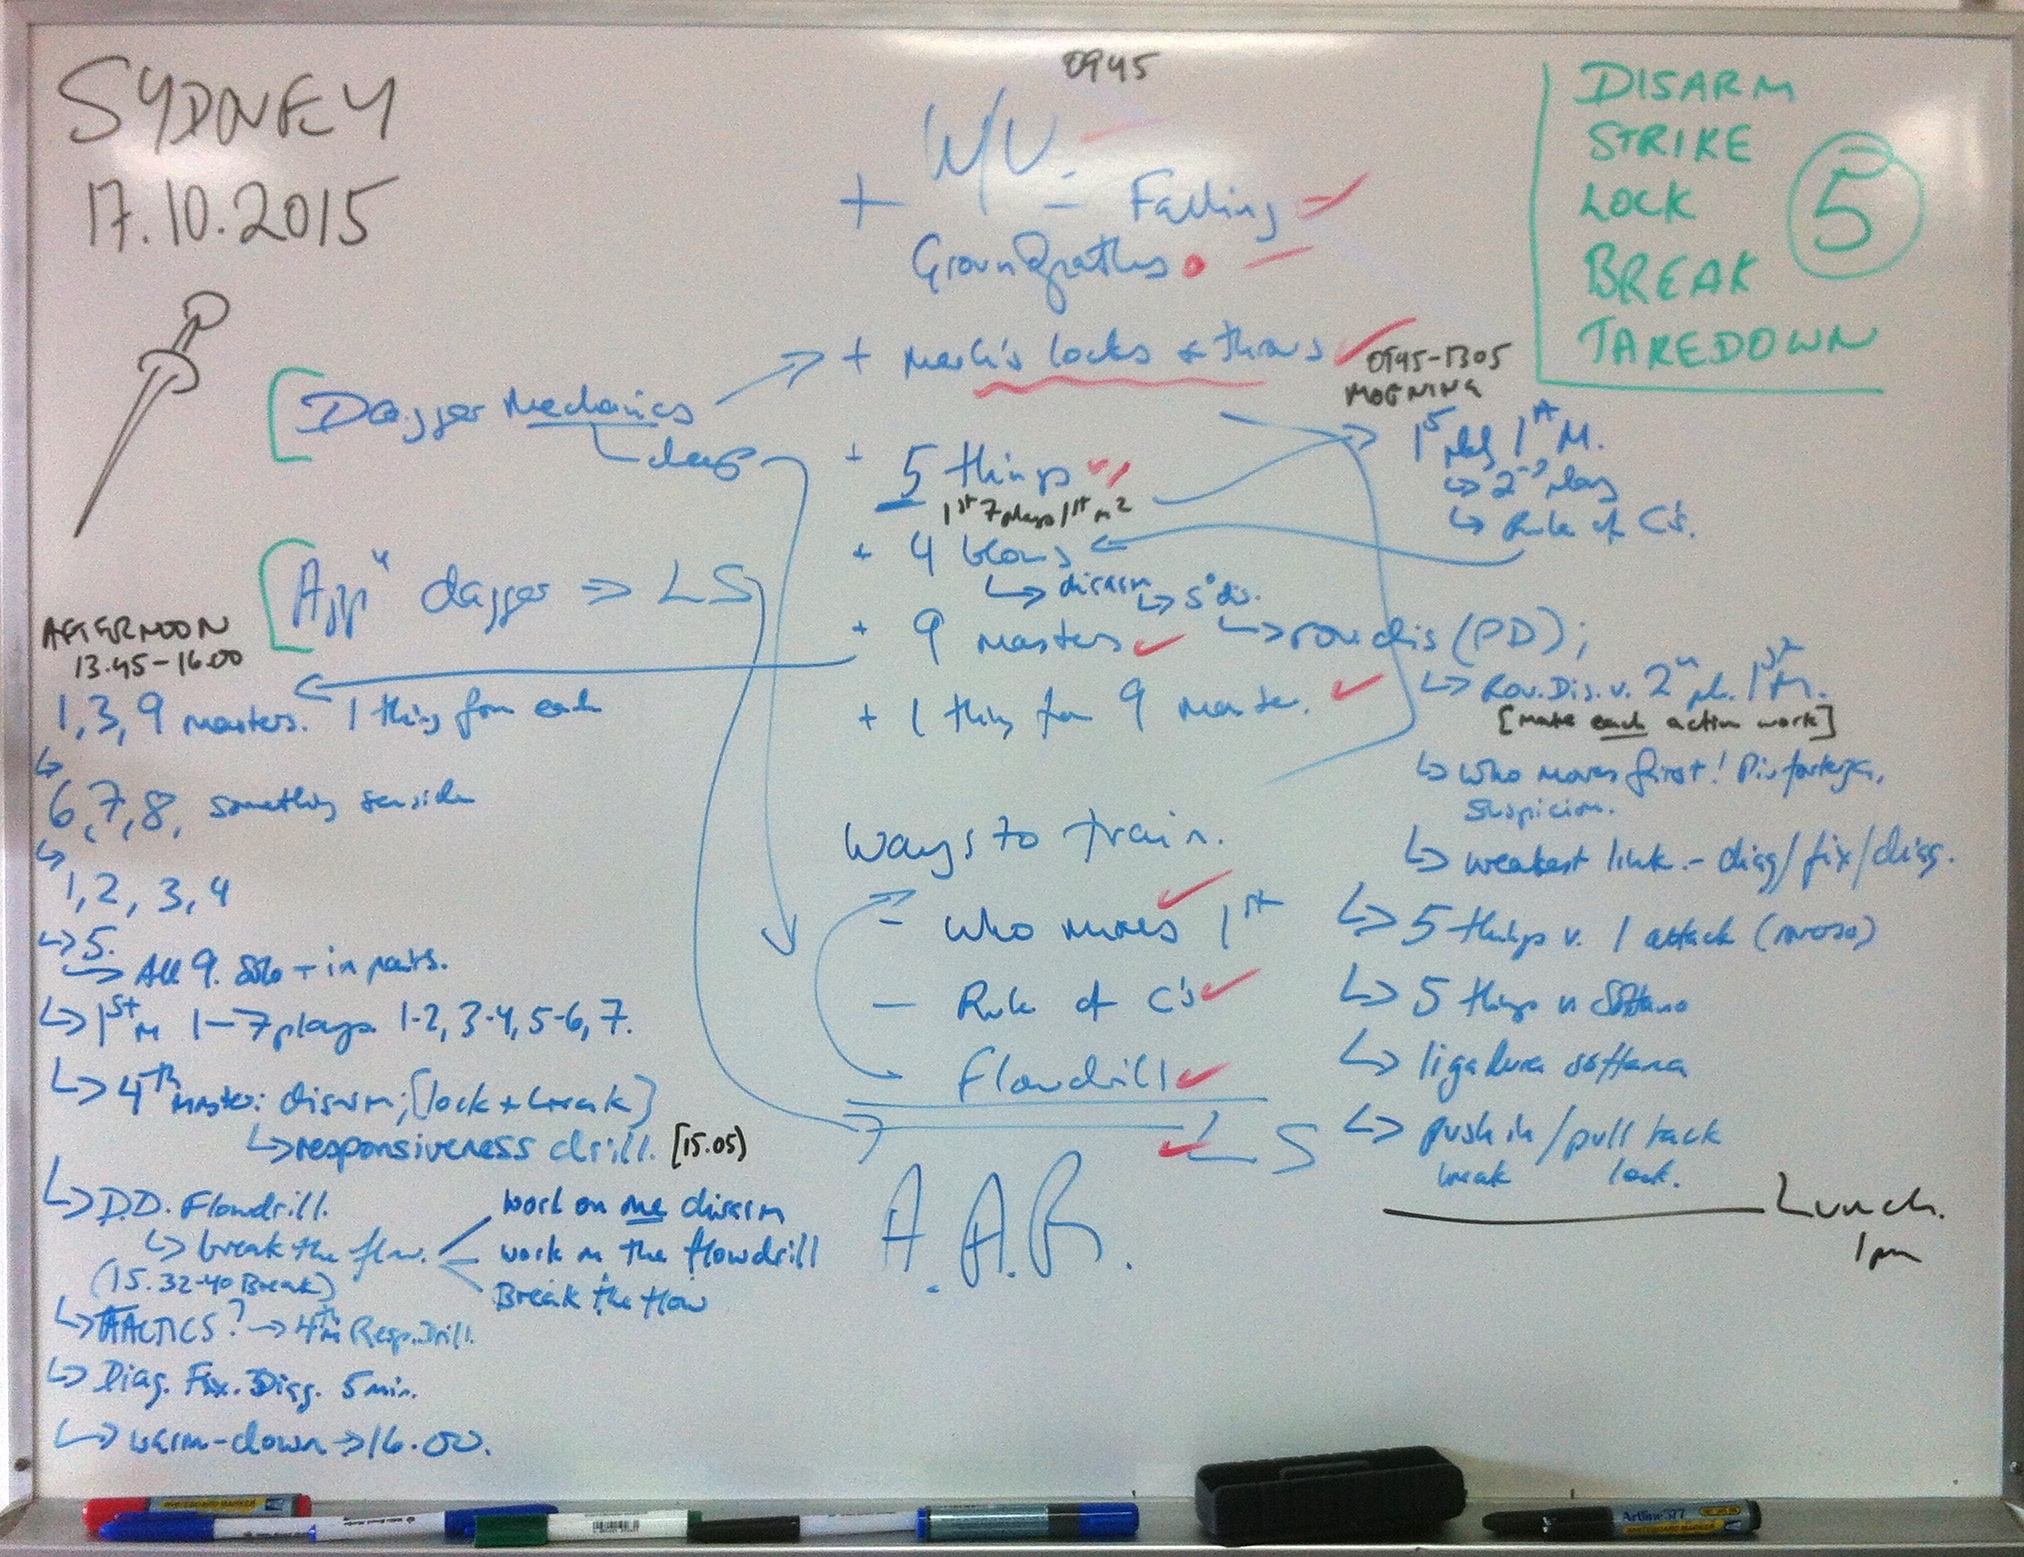 SYDNEY
17.10.2015
0945
W/U.
+ - Falling
Groundpaths
+ Mech's locks & throws
Dagger Mechanics
deep
+ 5 things
1st 7 plays 1st M
+ 4 blows
↳ disarm ↳ 5 dis.
+ 9 masters ↳ rov. dis (PD);
+ 1 thing for 9 master.
App dagger ⇒ LS
Ways to train.
- Who moves 1st
- Rule of C's
- Flowdrill
LS
A.A.R.
DISARM
STRIKE
LOCK
BREAK
TAKEDOWN
5
0945-1305
MORNING
1st M.
↳ Rule of C's.
↳ Rov. Dis. v. 2nd pl. 1st M.
[make each action work]
↳ Who moves first!
Suspicion.
↳ weakest link. - diag/fix/diag.
↳ 5 things v. 1 attack
↳ 5 things v. sottano
↳ ligadura sottana
↳ push in/pull back
break lock.
Lunch.
1pm
AFTERNOON
13.45-16.00
1, 3, 9 masters. 1 thing from each
↳
6, 7, 8, something
↳
1, 2, 3, 4
↳ 5.
↳ All 9. Solo + in pairs.
↳ 1st M 1-7 plays 1-2, 3-4, 5-6, 7.
↳ 4th Master: disarm; [lock + break]
↳ responsiveness drill. [15.05)
↳ D.D. Flowdrill.
↳ break the flow.
work on one disarm
work on the flowdrill
Break the flow
(15.32-40 Break)
↳ TACTICS? → 4th M Resp. Drill.
↳ Diag. Fix. Diag. 5 min.
↳ warm-down → 16.00.